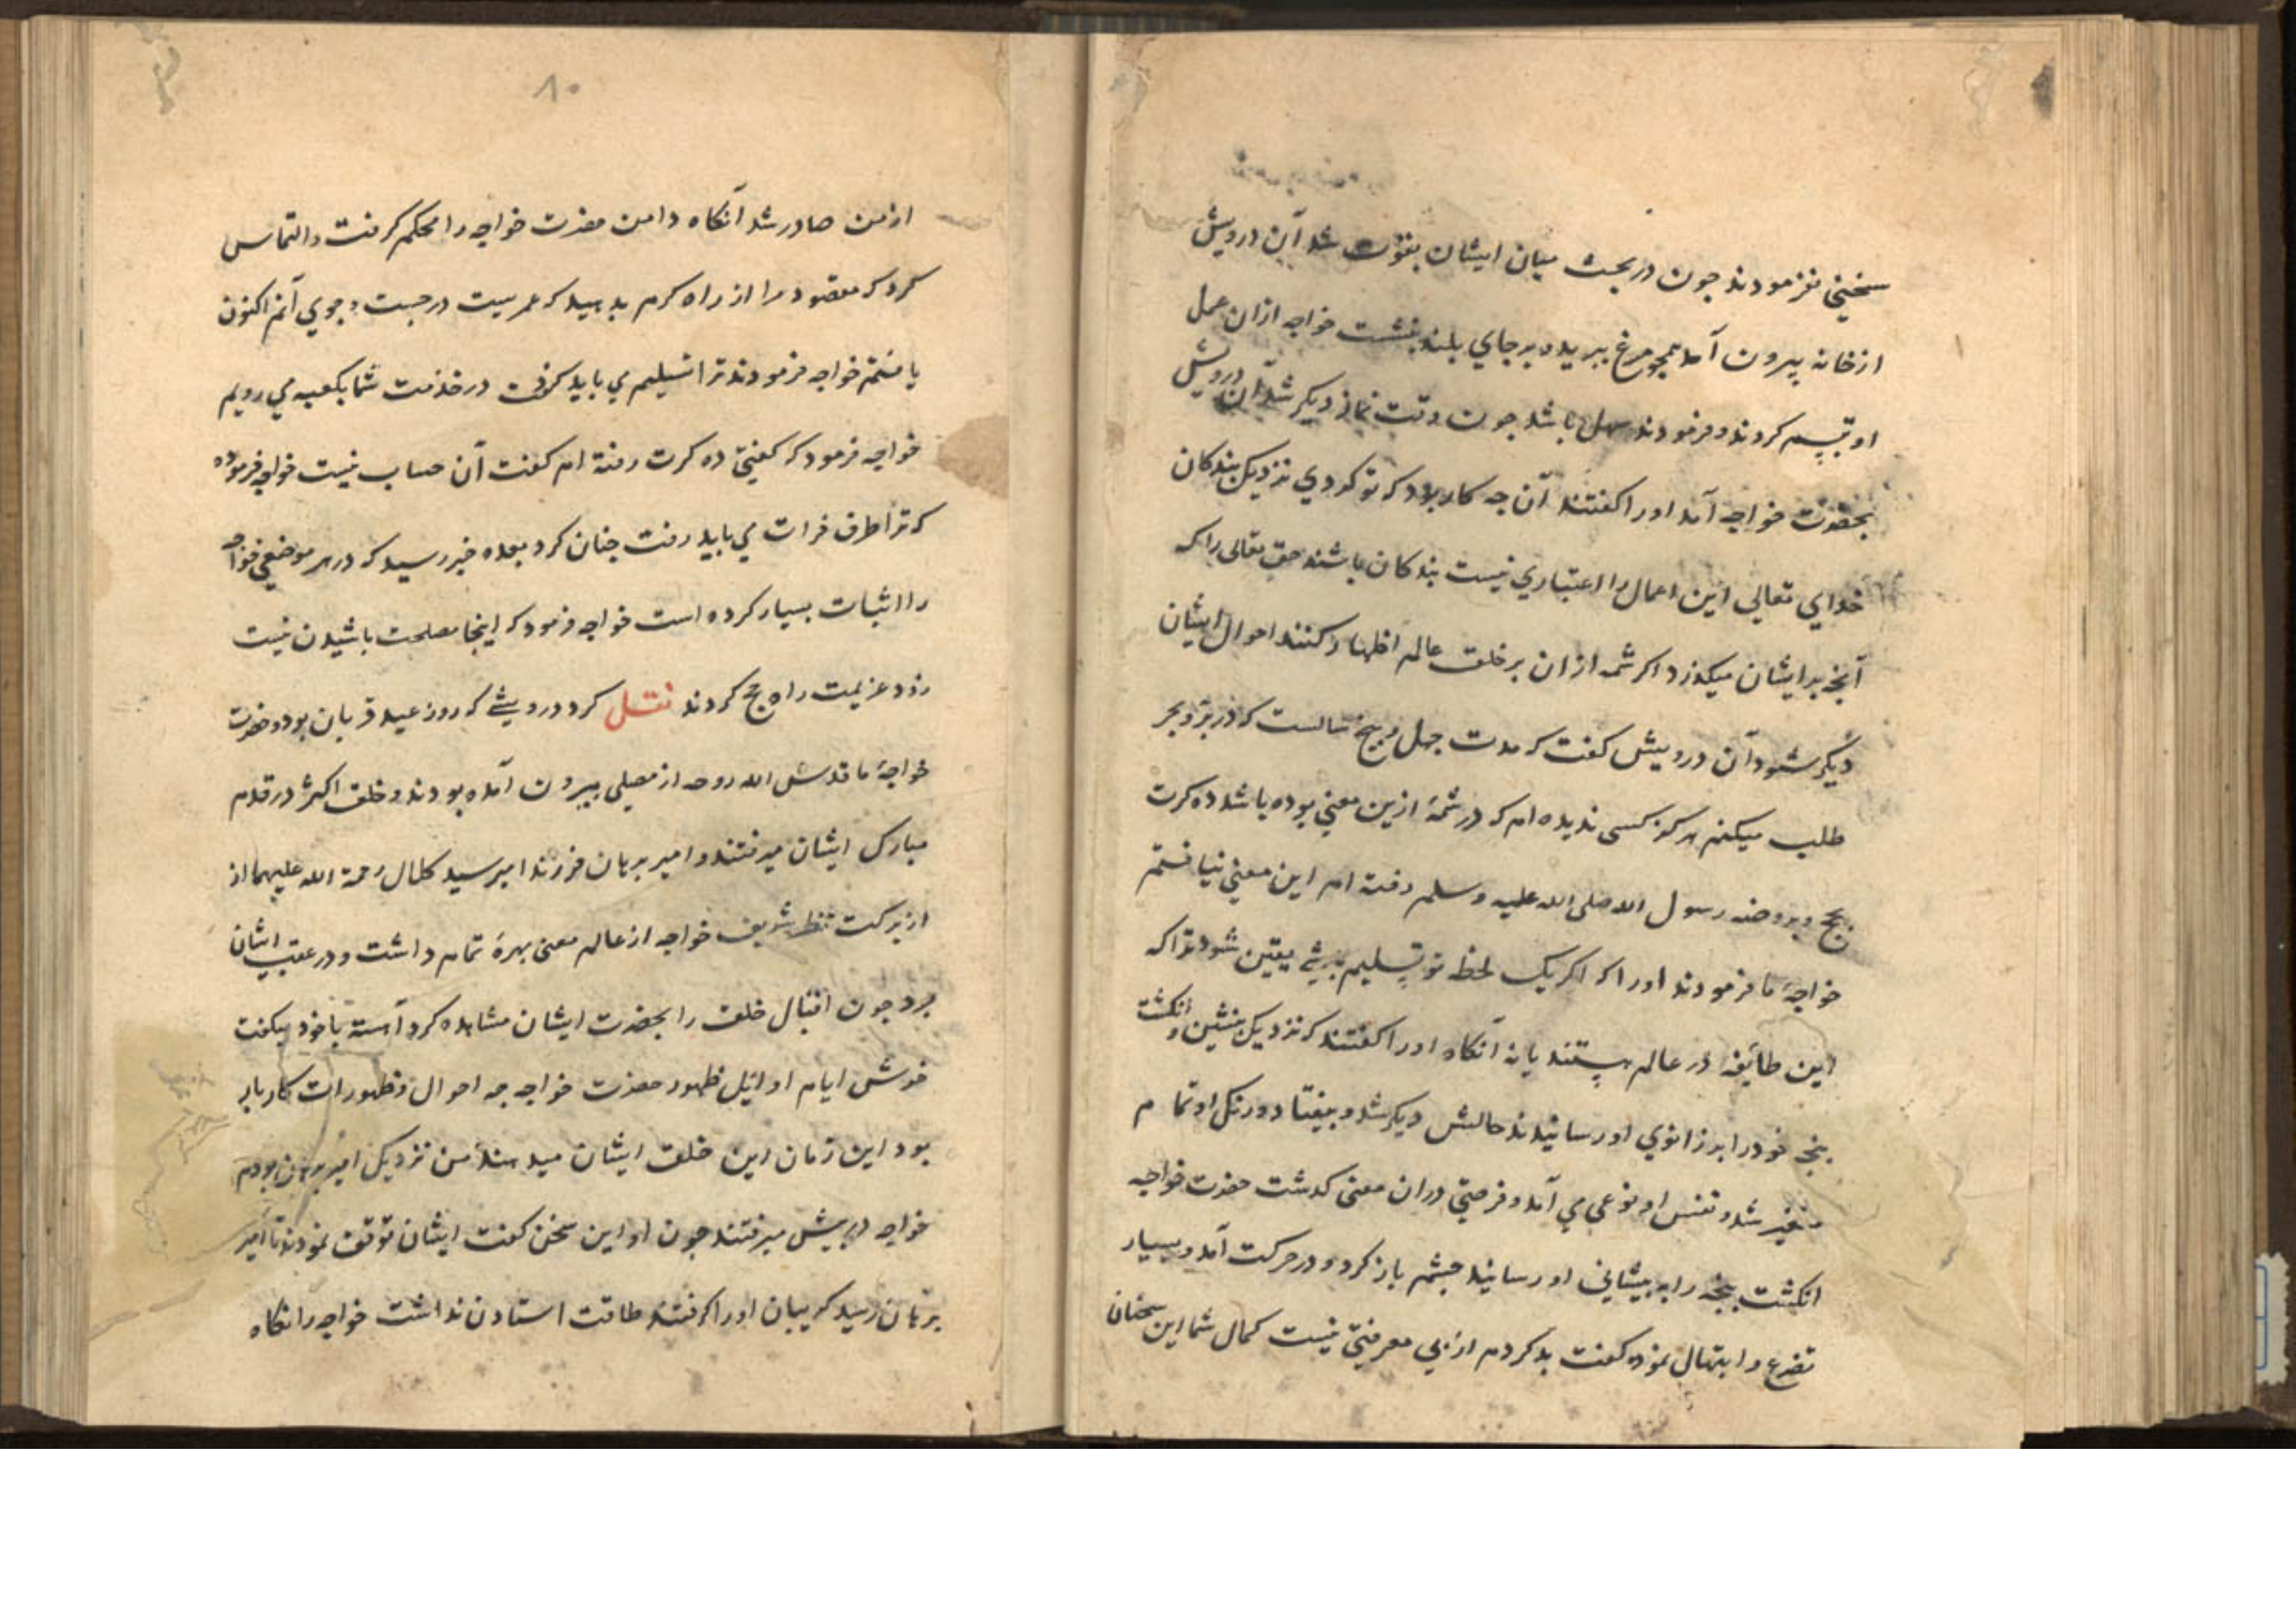 سخنی نفرمودند جون در بحث میان ایشان بقوت شد آن درویش
از خانه بیرون آمد همجو مرغ ببرید و بر جای بلند بنشست خواجه ازان عمل
او تبسم کردند و فرمودند سهل باشد جون وقت نماز دیکر شد آن درویش
بحضرت خواجه آمد او را کفتند آن جه کار بود که تو کردی نزدیک بندکان
خدای تعالی این اعمال را اعتباری نیست بندکان باشند حق تعالی را که
آنجه بر ایشان میکذرد اکر شمه ازان بر خلق عالم اظهار کنند احوال ایشان
دیکر شود آن درویش کفت که مدت جهل و بنج سالست که در بر و بحر
طلب میکنم هرکز کسی ندیده ام که در شمهٔ ازین معنی بوده باشد ده کرت
بحج و بروضه رسول الله صلی الله علیه وسلم رفته ام این معنی نیافتم
خواجهٔ ما فرمودند او را که اکر یک لحظه تو تسلیم شوی یقین شود ترا که
این طائفه در عالم هستند یا نه آنکاه او را کفتند که نزدیک بنشین و انکشت
بنجه خود را بر زانوی او رسانیدند حالش دیکر شد و بیفتاد و رنک او تمام
متغیر شد و نفس او نوعی می آمد و فرصتی دران معنی کدشت حضرت خواجه
انکشت بنجه را به بیشانی او رسانید جشم باز کرد و در حرکت آمد و بسیار
تضرع و ابتهال نموده کفت بد کردم از بی معرفتی نیست کمال شما این سخنان
۸۰
از من صادر شد آنکاه دامن حضرت خواجه را محکم کرفت و التماس
کرد که مقصود مرا از راه کرم بدهید که عمریست در جست و جوی آنم اکنون
یافتم خواجه فرمودند ترا تسلیم می باید کرفت در خدمت شما بکعبه می رویم
خواجه فرمود که کفتی ده کرت رفته ام کفت آن حساب نیست خواجه فرموده
که ترا طرف فرات می باید رفت جنان کرد بعده خبر رسید که در هر موضعی خواجه
را اثبات بسیار کرده است خواجه فرمود که اینجا مصلحت باشیدن نیست
زود عزیمت راه حج کردند نقل کرد درویشی که روز عید قربان بود و حضرت
خواجهٔ ما قدس الله روحه از مصلی بیرون آمده بودند و خلق اکثر در قدم
مبارک ایشان میرفتند و امیر برهان فرزند امیر سید کلال رحمة الله علیهما از
از برکت نظر شریف خواجه از عالم معنی بهرهٔ تمام داشت و در عقب ایشان
برد جون اقبال خلق را بحضرت ایشان مشاهده کرد آهسته با خود میکفت
خوش ایام اوائل ظهور حضرت خواجه جه احوال و ظهورات کاربار
بود این زمان این خلق ایشان میدهند من نزدیک امیر برهان بودم
خواجه در بیش میرفتند جون او این سخن کفت ایشان توقف نمودند تا امیر
برهان رسید کریبان او را کرفتند طاقت استادن نداشت خواجه را نکاه